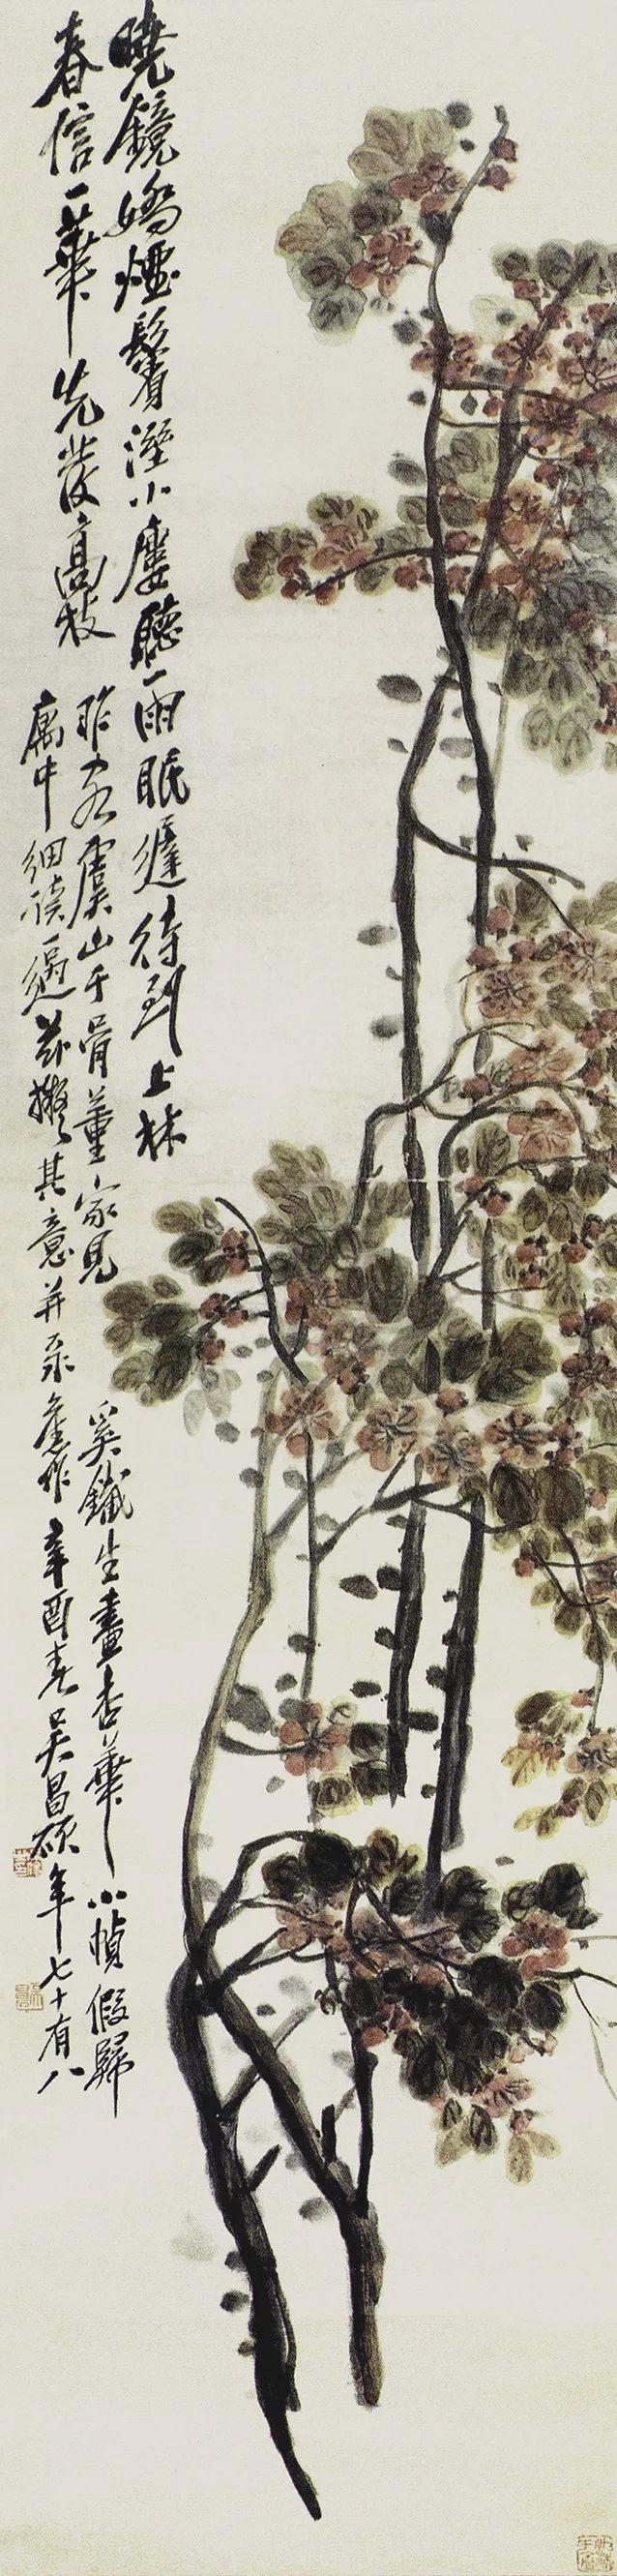 曉鏡嬌煙鬢溼小廔聽雨眠遲待到上林
春信一華先發高枝
昨客虞山于骨董家見奚鐵生畫杏華小幀假歸
寓中細讀一過茲擬其意并录舊作辛酉春吳昌碩年七十有八